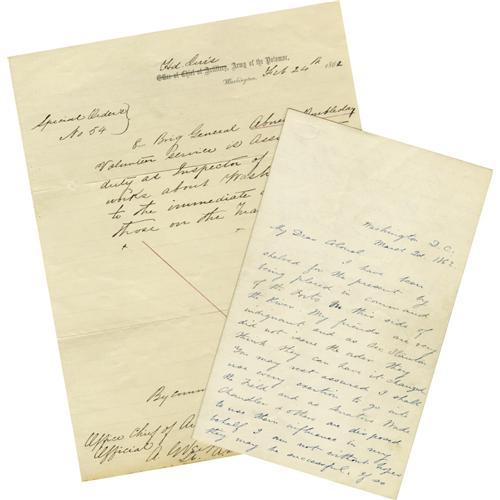 Hd Qrs
Office of Chief of Artillery, Army of the Potomac,
Washington, Feb 24th 1862
Special Orders
No 54
Brig General Abner Doubleday
Volunteer Service is Assi
duty as Inspector of
works about Wash
to the immediate
those on the
By comm
Office Chief of Ar
Official
Washington D.C.
March 2d, 1862
My Dear Colonel
I have been
shelved for the present by
being placed in command
of the Forts on this side of
the River. My friends are very
indignant, and as Mr Stanton
did not issue the order they
think they can have it changed.
You may rest assured I shall
use every exertion to go into
the Field, and as Senators Wade
Chandler & others are disposed
to use their influence in my
behalf I am not without hopes
they may be successful. If so